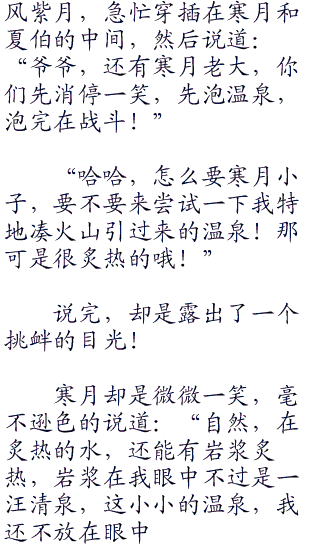 风紫月，急忙穿插在寒月和
夏伯的中间，然后说道：
“爷爷，还有寒月老大，你
们先消停一笑，先泡温泉，
泡完在战斗！”
“哈哈，怎么要寒月小
子，要不要来尝试一下我特
地凑火山引过来的温泉！那
可是很炙热的哦！”
说完，却是露出了一个
挑衅的目光！
寒月却是微微一笑，毫
不逊色的说道：“自然，在
炙热的水，还能有岩浆炙
热，岩浆在我眼中不过是一
汪清泉，这小小的温泉，我
还不放在眼中